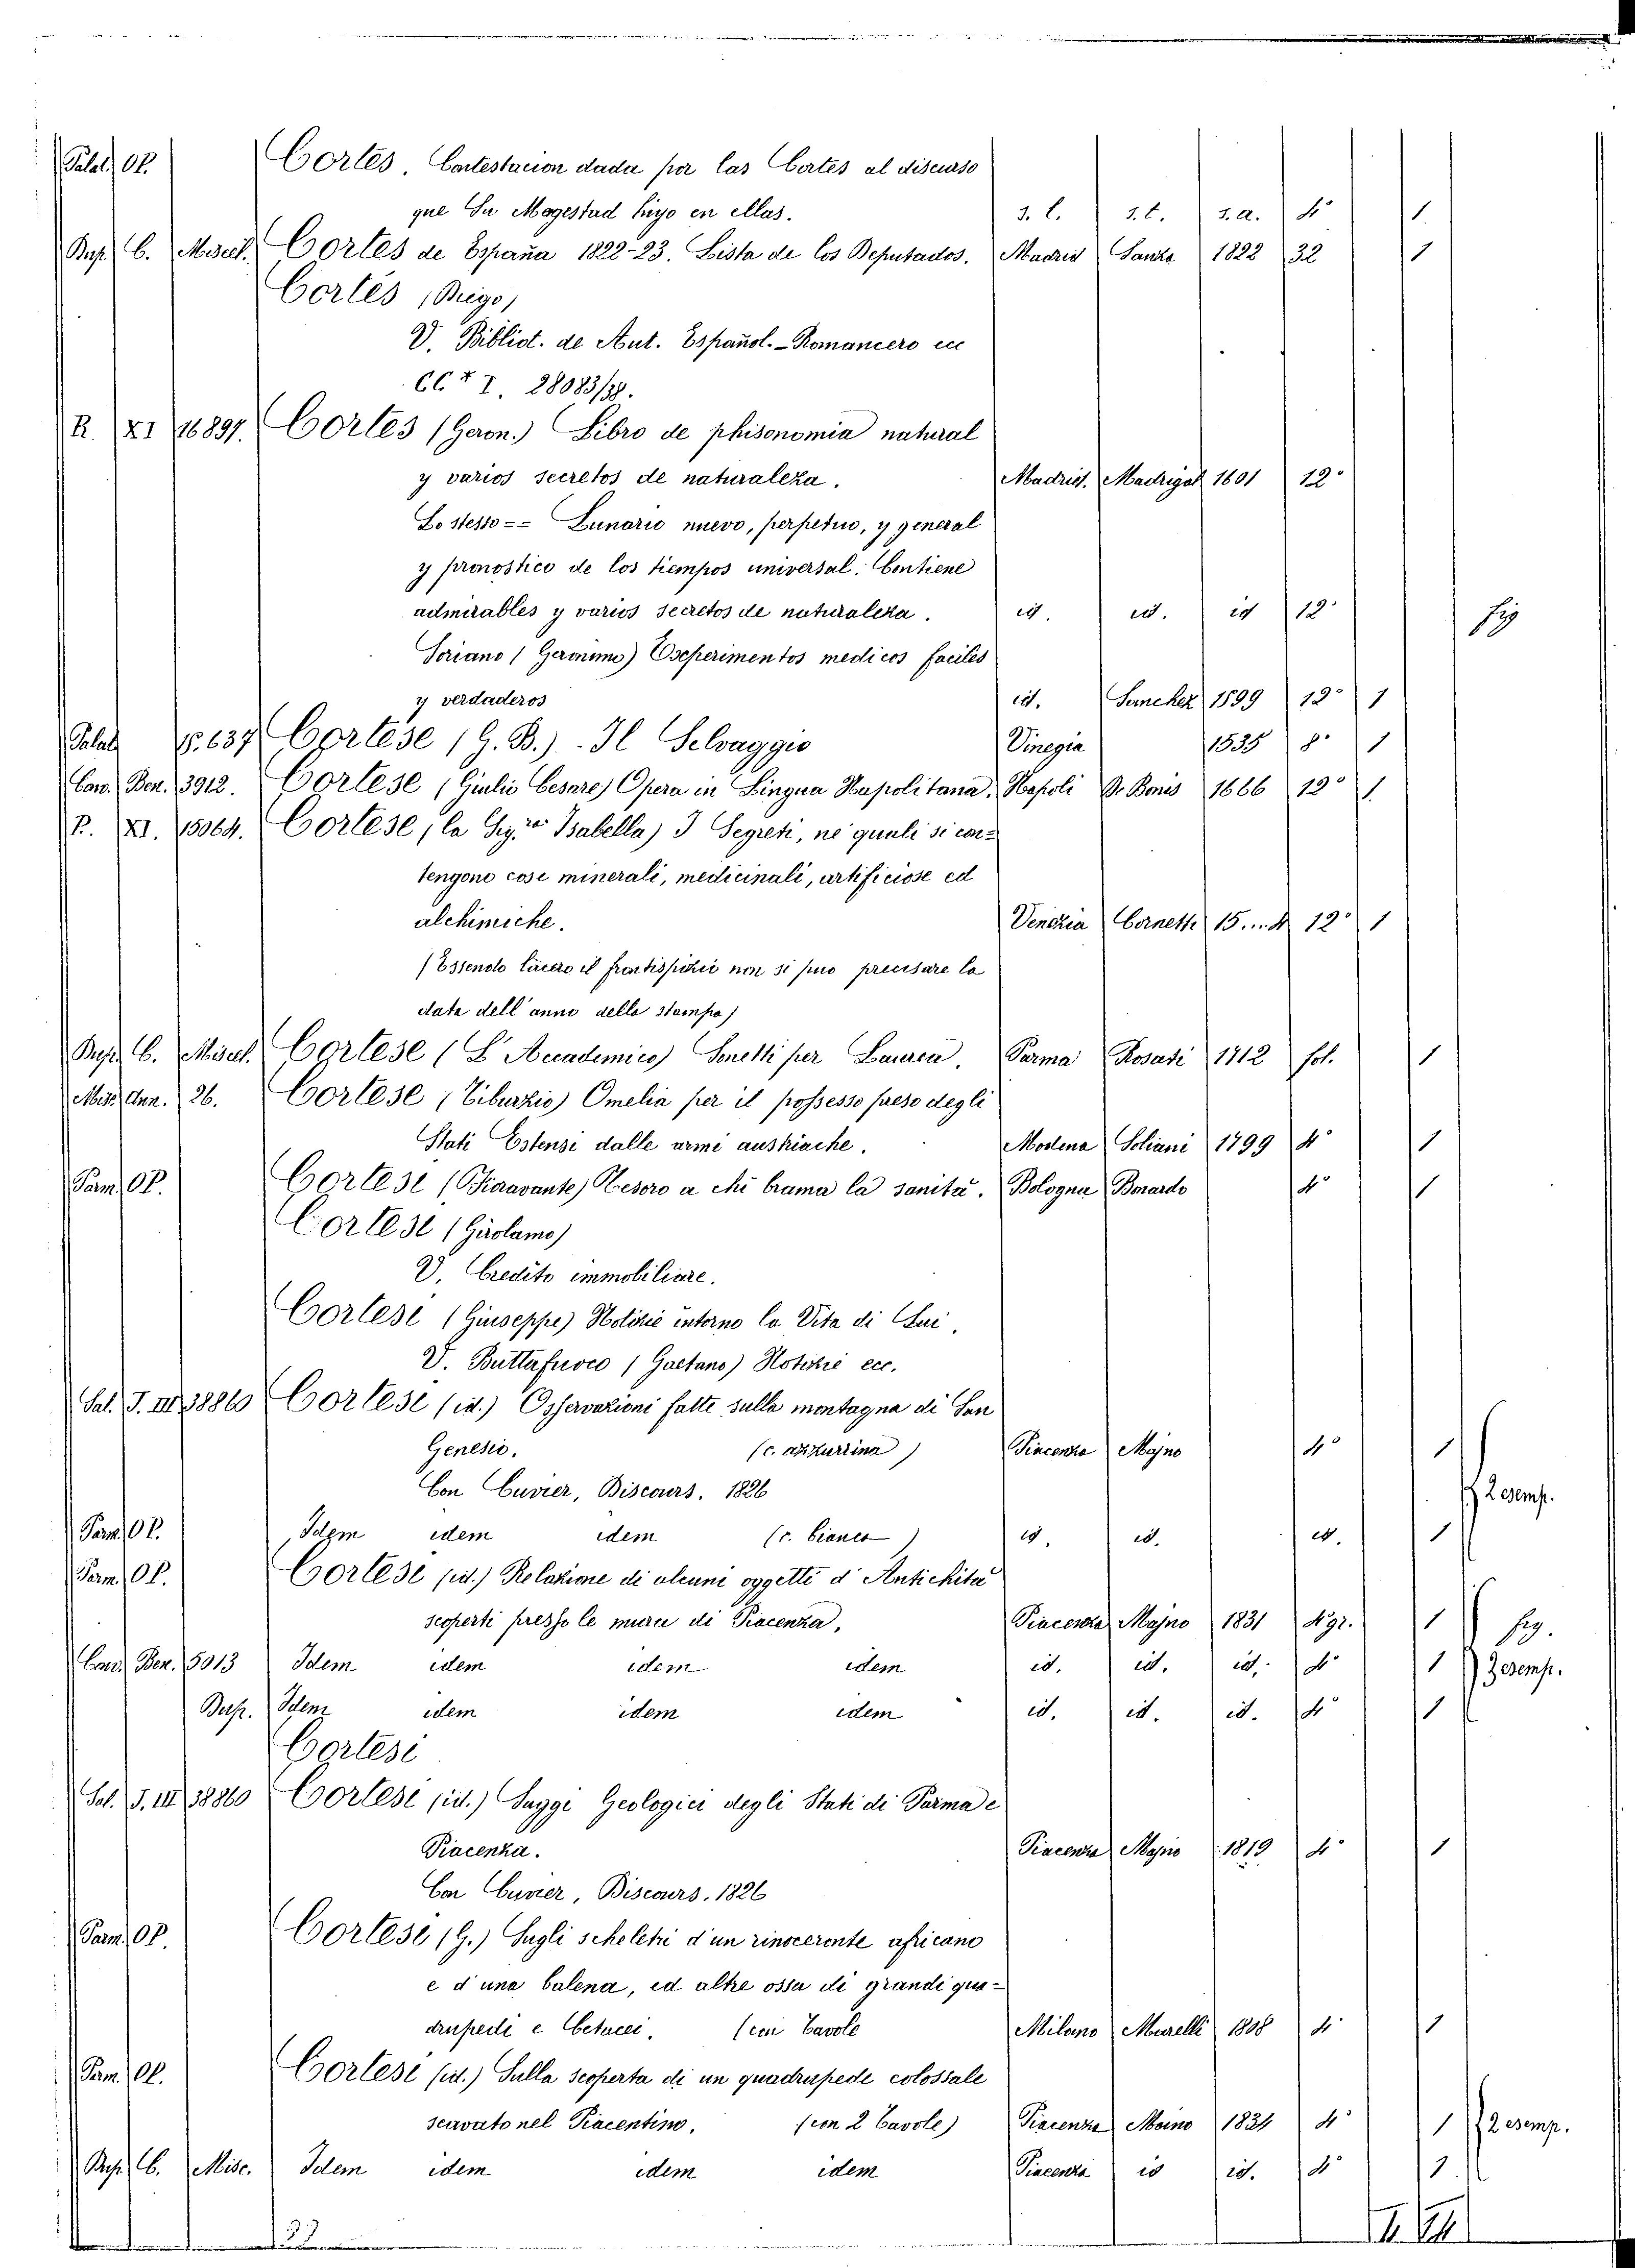 Palat. OP. Cortes. Contestacion dada por las Cortes al discurso
que Su Magestad hizo en ellas. s. l. s. t. s. a. 4° 1
Busp. C. Miscell. Cortes de España 1822-23. Lista de los Deputados. Madrid Sanza 1822 32 1
Cortés (Diego)
V. Bibliot. de Aut. Español. - Romancero
CC* I. 28083/38.
R. XI 16897. Cortes (Geron.) Libro de phisonomia natural
y varios secretos de naturaleza. Madrid. Madrigal 1601 12°
Lo stesso == Lunario nuevo, perpetuo, y general
y pronostico de los tiempos universal. Contiene
admirables y varios secretos de naturaleza. id. id. id 12° fig
Soriano (Geronimo) Esperimentos medicos faciles
y verdaderos id. Sanchez 1599 12° 1
Palat 15.637 Cortese (G. B.) - Il Selvaggio Vinegia 1535 8° 1
Cav. Ben. 3912. Cortese (Giulio Cesare) Opera in Lingua Napolitana. Napoli De Bonis 1666 12° 1.
P. XI. 15064. Cortese (la Sig.ra Isabella) I Segreti, ne' quali si con=
tengono cose minerali, medicinali, artificiose ed
alchimiche. Venezia Cornetti 15... 12° 1
(Essendo lacero il frontispizio non si può precisare la
data dell'anno della stampa)
Busp. C. Miscel. Cortese (L'Accademico) Sonetti per Laurea. Parma Rosati 1712 fol. 1
Misc. Ann. 26. Cortese (Tiburzio) Omelia per il possesso preso degli
Stati Estensi dalle armi austriache. Modena Soliani 1799 4° 1
Parm. OP. Cortesi (Fioravante) Tesoro a chi brama la sanità. Bologna Bonardo 4° 1
Cortesi (Girolamo)
V. Credito immobiliare.
Cortesi (Giuseppe) Notizie intorno la Vita di Lui.
V. Buttafuoco (Gaetano) Notizie ecc.
Sal. J. III 38860 Cortesi (id.) Osservazioni fatte sulla montagna di San
Genesio. (c. azzurrina) Piacenza Majno 4° 1
Con Cuvier, Discours. 1826 2 esemp.
Parm. OP. Idem idem idem (c. bianca) id. id. id. 1
Parm. OP. Cortesi (id.) Relazione di alcuni oggetti d'Antichità
scoperti presso le mura di Piacenza. Piacenza Majno 1831 4°gr. 1 fig.
Cav. Ben. 5013 Idem idem idem idem id. id. id. 4° 1 3 esemp.
Busp. Idem idem idem idem id. id. id. 4° 1
Cortesi
Sal. J. III 38860 Cortesi (id.) Saggi Geologici degli Stati di Parma e
Piacenza. Piacenza Majno 1819 4° 1
Con Cuvier, Discours. 1826
Parm. OP. Cortesi (G.) Sugli scheletri d'un rinoceronte africano
e d'una balena, ed altre ossa di grandi qua=
drupedi e Cetacei. (con Tavole Milano Murelli 1808 4° 1
Parm. OP. Cortesi (id.) Sulla scoperta di un quadrupede colossale
scavato nel Piacentino. (con 2 Tavole) Piacenza Maino 1834 4° 1 2 esemp.
Busp. C. Misc. Idem idem idem idem Piacenza id id. 4° 1